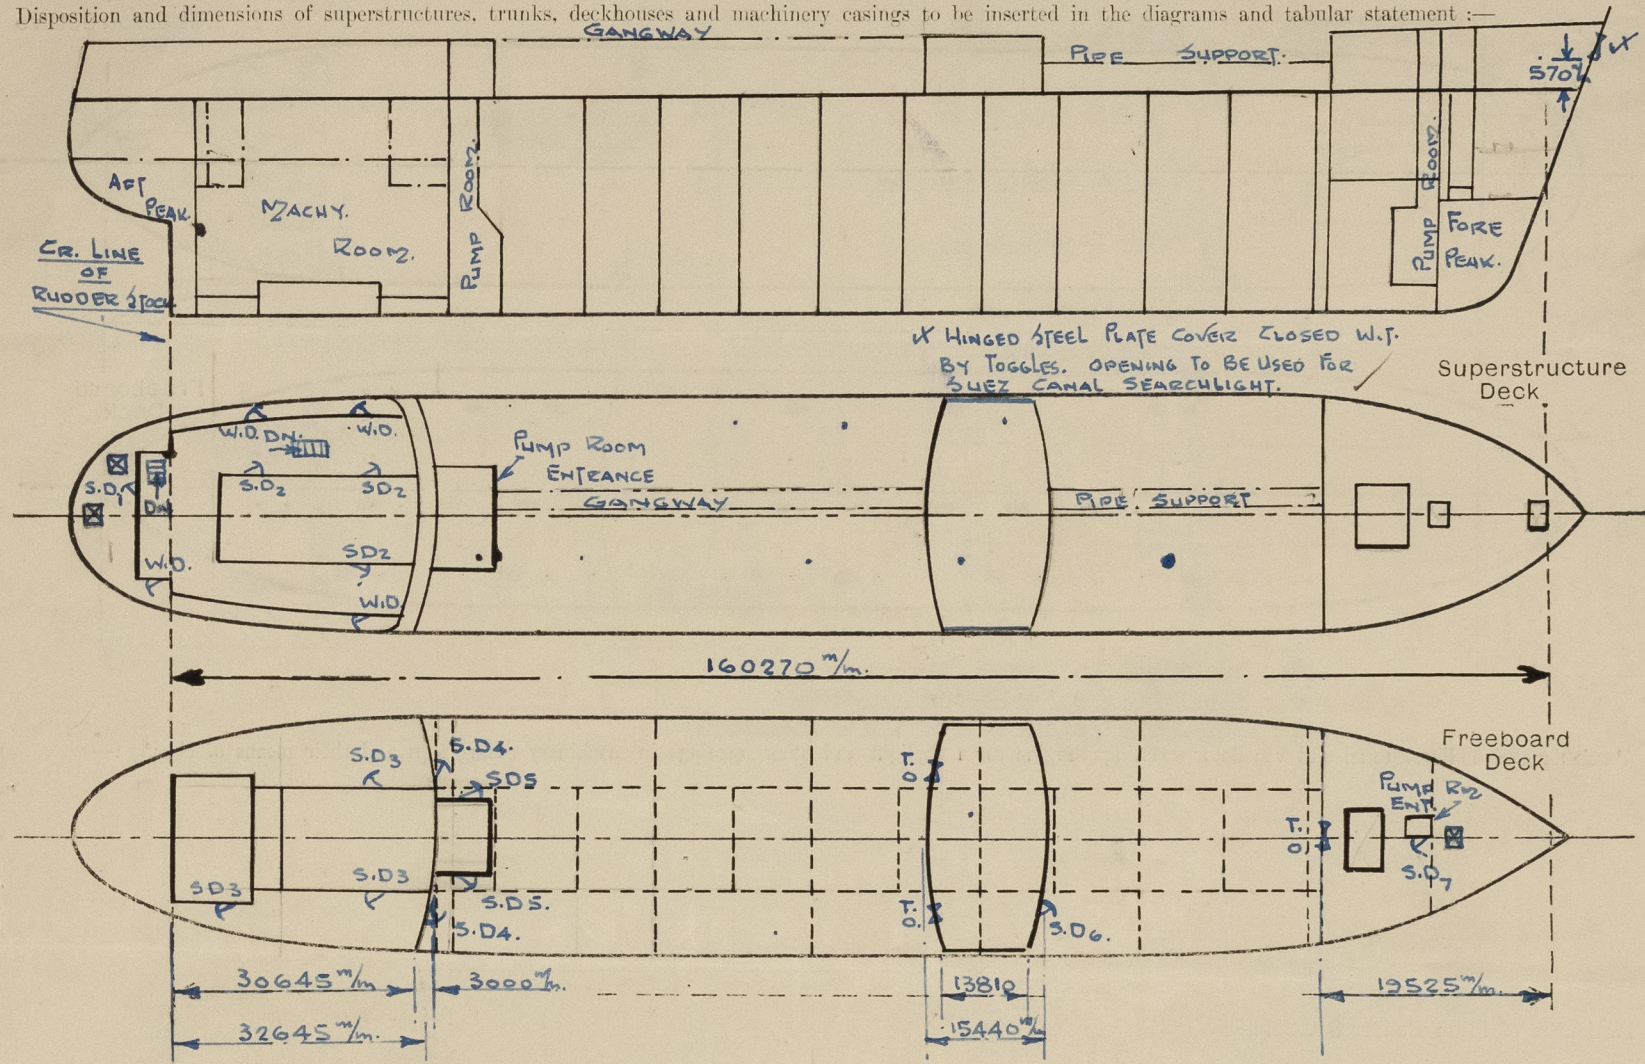 Disposition and dimensions of superstructures, trunks, deckhouses and machinery casings to be inserted in the diagrams and tabular statement :—
GANGWAY
PIPE SUPPORT.
570
AFT
PEAK.
MACHY.
ROOM.
PUMP ROOM.
PUMP ROOM.
FORE
PEAK.
CR. LINE
OF
RUDDER STOCK
X HINGED STEEL PLATE COVER CLOSED W.T.
BY TOGGLES. OPENING TO BE USED FOR
SUEZ CANAL SEARCHLIGHT.
Superstructure
Deck
W.D. DN. W.D.
PUMP ROOM
ENTRANCE
S.D.1 S.D2 SD2
DN
GANGWAY
PIPE SUPPORT
SD2
W.D.
W.D.
160270 m/m.
Freeboard
Deck
S.D3
S.D4.
SD5
T.
O.
PUMP RM
ENT.
T.
O.
S.D7
SD3
S.D3
S.D5.
S.D4.
T.
O.
S.D6.
30645 m/m
3000 m/m.
13810
19525 m/m.
32645 m/m.
15440 m/m